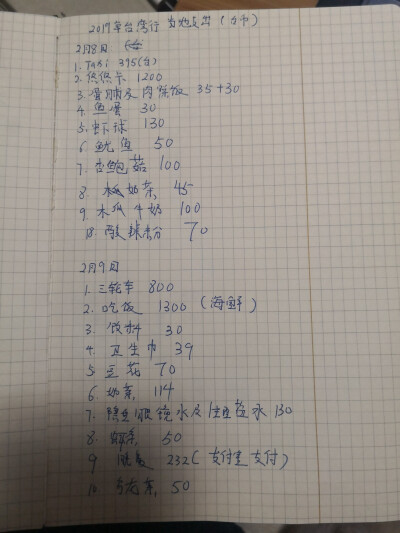 2019年台湾行 当地支出(台币)
2月8日
1. Taxi 395(台)
2. 悠悠卡 1200
3. 胃肠及肉燥饭 35+30
4. 鱼蛋 30
5. 虾球 130
6. 鱿鱼 50
7. 杏鲍菇 100
8. 奶茶 45
9. 木瓜牛奶 100
10. 酸辣粉 70
2月9日
1. 三轮车 800
2. 吃饭 1300 (海鲜)
3. 饮料 30
4. 卫生巾 39
5. 豆花 70
6. 奶茶 114
7. 隐形眼镜水及 水 130
8. 50
9 232(支付宝支付)
10 乌龙茶 50